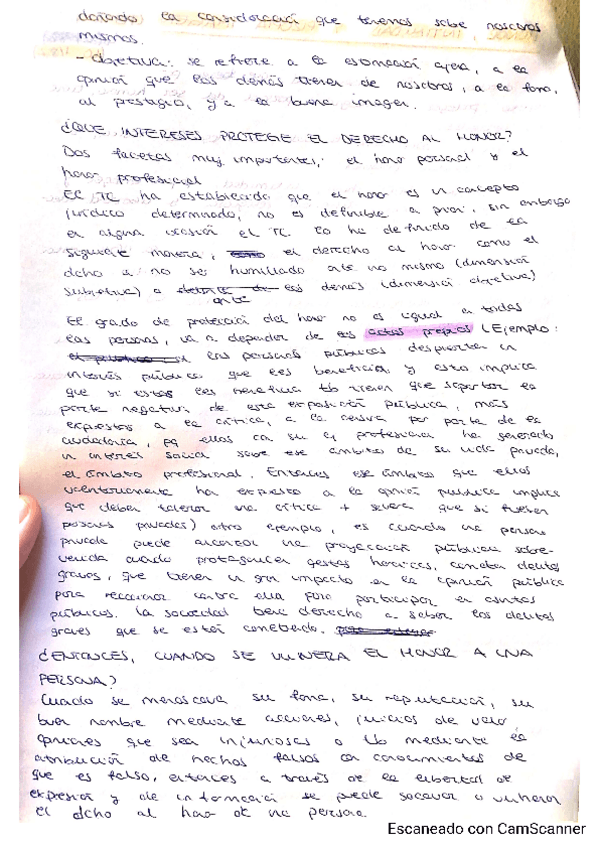 dañado, la consideración que tenemos sobre nosotros
mismos.
- Objetiva: se refiere a la estimación ajena, a la
opinión que los demás tienen de nosotros, a la fama,
al prestigio, y a la buena imagen.
¿QUE INTERESES PROTEGE EL DERECHO AL HONOR?
Dos facetas muy importantes, el honor personal y el
honor profesional
El TC ha establecido que el honor es un concepto
jurídico determinado, no es definible a priori, sin embargo
en alguna ocasión el TC lo ha definido de la
siguiente manera, el derecho al honor como el
dcho a no ser humillado ante uno mismo (dimensión
subjetiva) o ante los demás (dimensión objetiva)
El grado de protección del honor no es igual en todas
las personas, va a depender de los actos propios (Ejemplo:
las personas públicas despiertan un
interés público que les beneficia y esto implica
que si estos les beneficia tb tienen que soportar la
parte negativa de esta exposición pública, más
expuestos a la crítica, a la censura por parte de la
ciudadanía, pq ellos con su profesión ha generado
un interés social sobre ese ámbito de su vida privada,
el ámbito profesional. Entonces ese ámbito que ellos
voluntariamente ha expuesto a la opinión pública implica
que deben tolerar una crítica + severa que si fuesen
personas privadas) otro ejemplo, es cuando una persona
privada puede alcanzar una proyección pública sobre-
venida cuando protagonizan gestas heroicas, cometen delitos
graves, que tienen un gran impacto en la opinión pública
para reaccionar contra ella para participar en asuntos
públicos. La sociedad tiene derecho a saber los delitos
graves que se están cometiendo.
¿ENTONCES, CUANDO SE VULNERA EL HONOR A UNA
PERSONA?
Cuando se menoscava su fama, su reputación, su
buen nombre mediante acciones, juicios de valor
opiniones que sean injuriosas o tb mediante la
atribución de hechos falsos con conocimientos de
que es falso, entonces a través de la libertad de
expresión y de información se puede socavar o vulnerar
el dcho al honor de una persona.
Escaneado con CamScanner